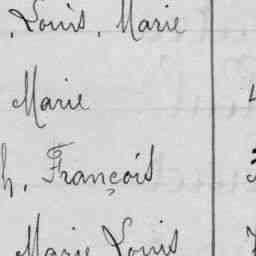 , Louis, Marie
Marie
h, François
Marie Louis